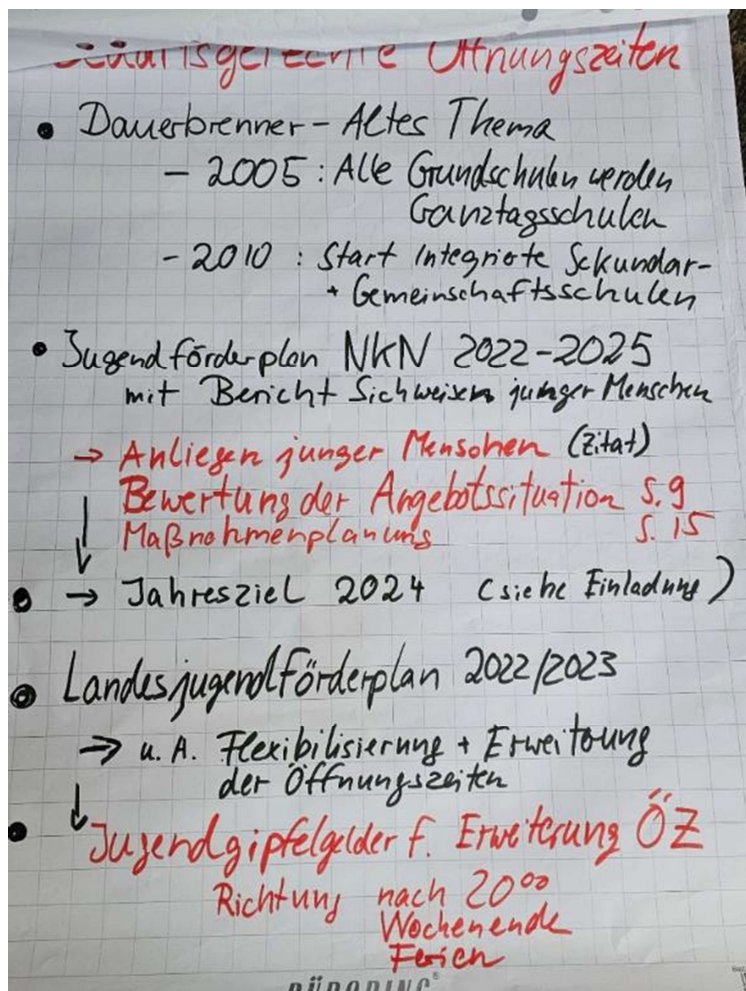 Bedarfsgerechte Öffnungszeiten
• Dauerbrenner – Altes Thema
– 2005 : Alle Grundschulen werden
Ganztagsschulen
– 2010 : Start Integrierte Sekundar-
+ Gemeinschaftsschulen
• Jugendförderplan NKN 2022–2025
mit Bericht Sichweisen junger Menschen
→ Anliegen junger Menschen (Zitat)
Bewertung der Angebotssituation S. 9
Maßnahmenplanung S. 15
• → Jahresziel 2024 (siehe Einladung)
• Landesjugendförderplan 2022/2023
→ u. A. Flexibilisierung + Erweiterung
der Öffnungszeiten
• ↳ Jugendgipfelgelder f. Erweiterung ÖZ
Richtung nach 20⁰⁰
Wochenende
Ferien
BÜRORING®